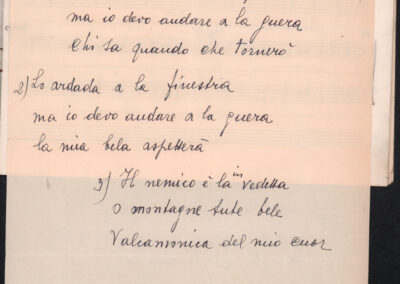 ma io devo andare a la guera
chi sa quando che tornerò
2) Lo ardada a la finestra
ma io devo andare a la guera
la mia bela aspetterà
3) Il nemico è la in vedetta
o montagne tute bele
Valcamonica del mio cuor